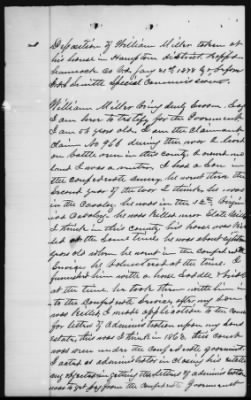 Deposition of William Miller taken at
his house in Hampton district Rappa-
hannock Co Va. Jany 21st 1878 by & before
Special Commissioner.
William Miller being duly Sworn. Says
I am here to testify for the Government
I am 65 years old. I am the claimant
claim No 966 during the war I lived
on Battle run in this county. I owned my
land I was a neutral. I had a Son in
the Confederate army. he went there the
second year of the war I think. he was
in the Cavalry. he was in the Virginia
Cavalry. he was killed near
I think in this county his horse was kil-
led at the same time he was about eighteen
years old when he went in the Confederate
Service he volunteered at the time. I
furnished him with a horse Saddle & bridle
at the time he took them with him in
to the Confederate Service after my Son
was killed I made application to the court
for letters of administration upon my Sons
estate, this was I think in 1863. this county
was then under the Confederate government
I acted as administrator in closing his estate
my object in getting the letters of administration
was to get pay from the Confederate Government